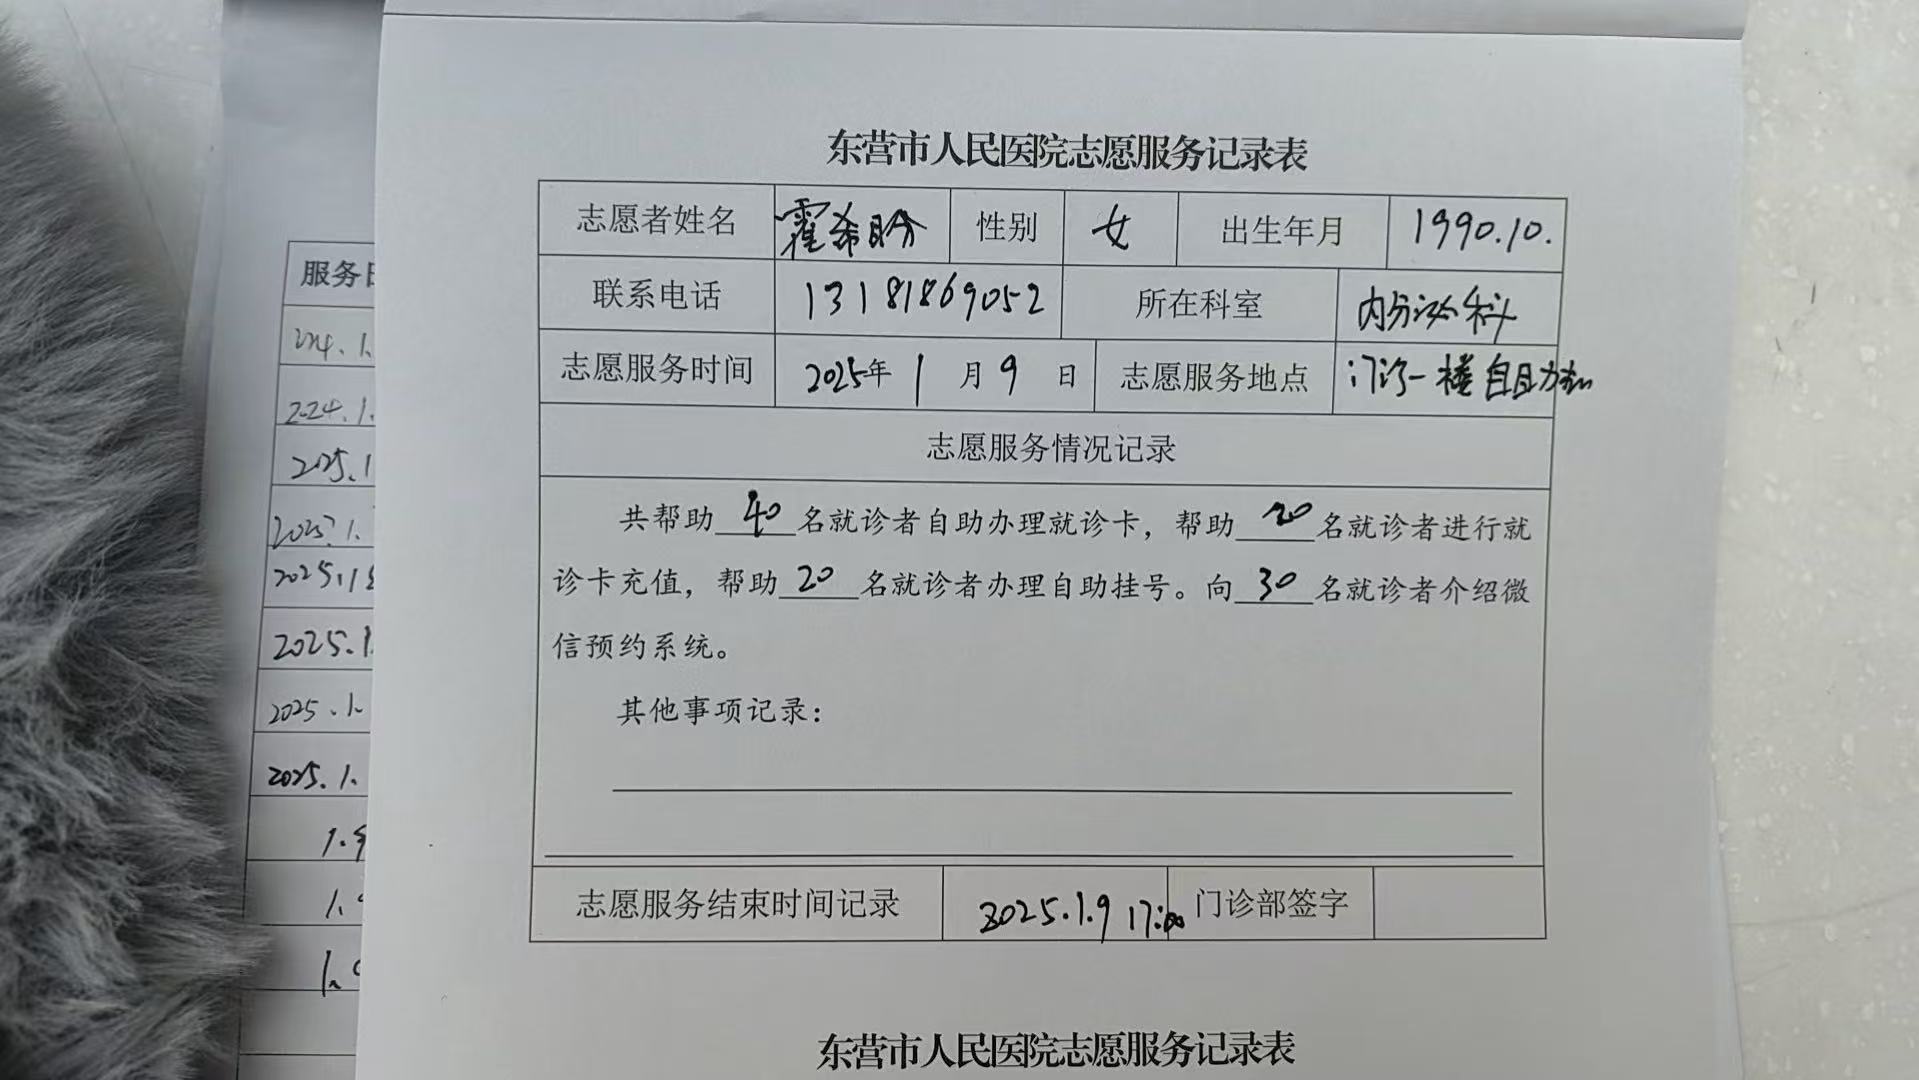 东营市人民医院志愿服务记录表
志愿者姓名 霍希盼 性别 女 出生年月 1990.10.
联系电话 13181869052 所在科室 内分泌科
志愿服务时间 2025年 1 月 9 日 志愿服务地点 门诊一楼自助机
志愿服务情况记录
共帮助40名就诊者自助办理就诊卡，帮助20名就诊者进行就
诊卡充值，帮助20名就诊者办理自助挂号。向30名就诊者介绍微
信预约系统。
其他事项记录：
志愿服务结束时间记录 2025.1.9 17:00 门诊部签字
东营市人民医院志愿服务记录表
服务日
2024.1.
2025.1
2025.1.
2025.1
2025.1.
2025.1.
2025.1.
1.9
1.
1.